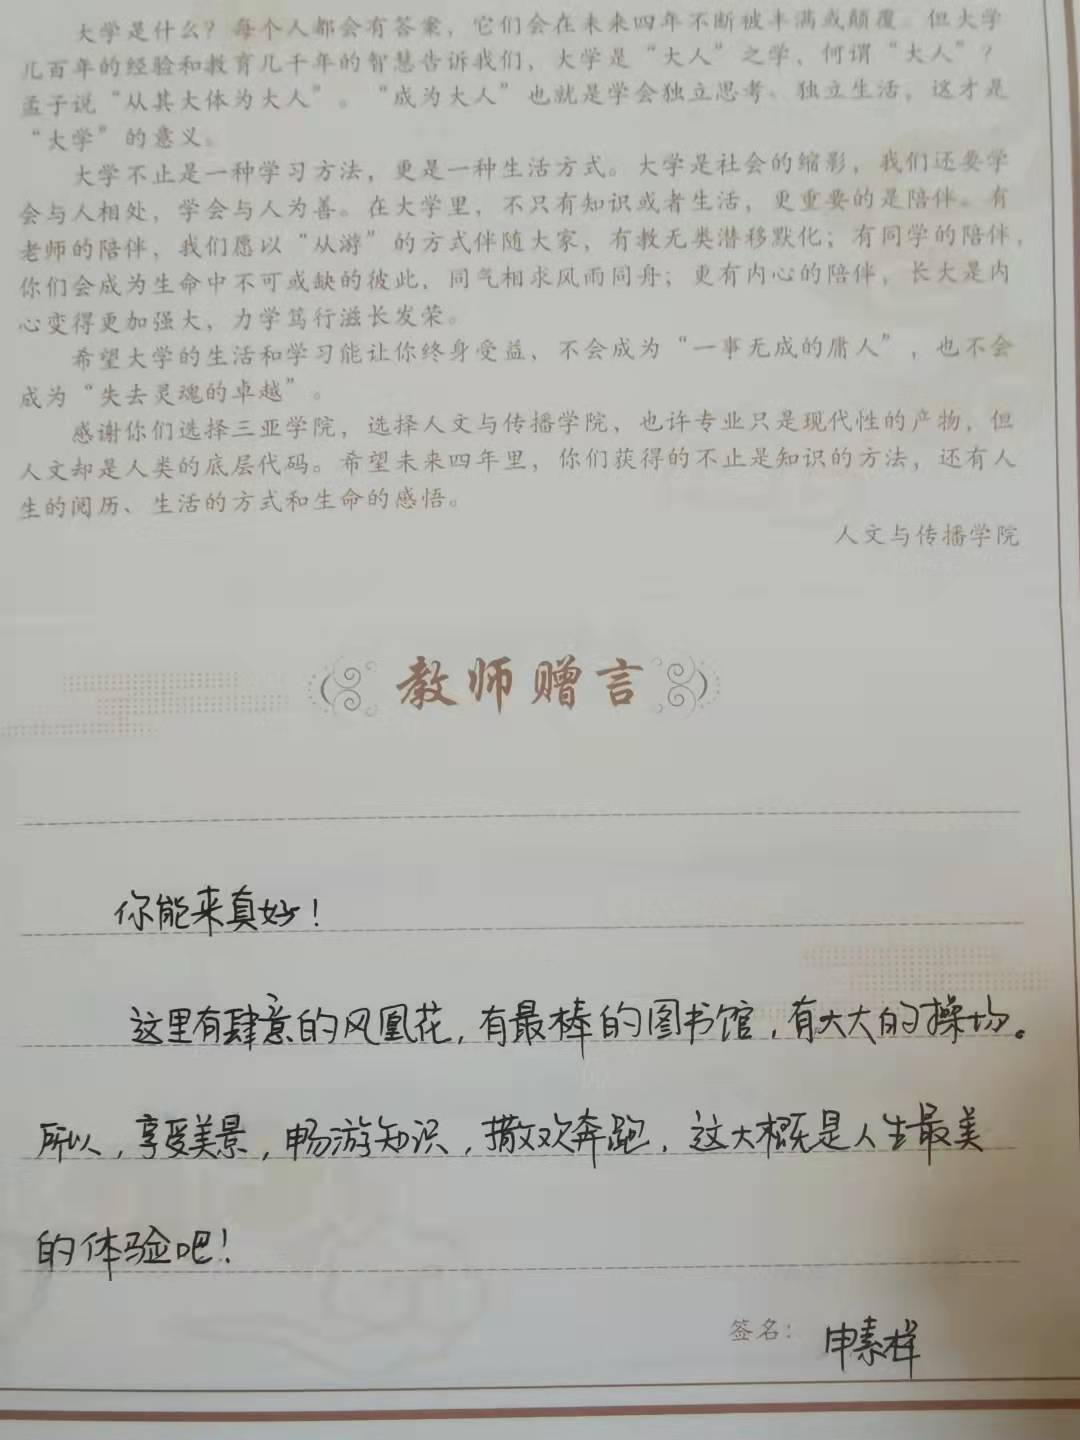 大学是什么？每个人都会有答案，它们会在未来四年不断被丰满或颠覆。但大学
几百年的经验和教育几千年的智慧告诉我们，大学是“大人”之学，何谓“大人”？
孟子说“从其大体为大人”。“成为大人”也就是学会独立思考、独立生活，这才是
“大学”的意义。
大学不止是一种学习方法，更是一种生活方式。大学是社会的缩影，我们还要学
会与人相处，学会与人为善。在大学里，不只有知识或者生活，更重要的是陪伴。有
老师的陪伴，我们愿以“从游”的方式伴随大家，有教无类潜移默化；有同学的陪伴，
你们会成为生命中不可或缺的彼此，同气相求风雨同舟；更有内心的陪伴，长大是内
心变得更加强大，力学笃行滋长发荣。
希望大学的生活和学习能让你终身受益，不会成为“一事无成的庸人”，也不会
成为“失去灵魂的卓越”。
感谢你们选择三亚学院，选择人文与传播学院，也许专业只是现代性的产物，但
人文却是人类的底层代码。希望未来四年里，你们获得的不止是知识的方法，还有人
生的阅历、生活的方式和生命的感悟。
人文与传播学院
教师赠言
你能来真好！
这里有肆意的风凰花，有最棒的图书馆，有大大的操场。
所以，享受美景，畅游知识，撒欢奔跑，这大概是人生最美
的体验吧！
签名：申素样